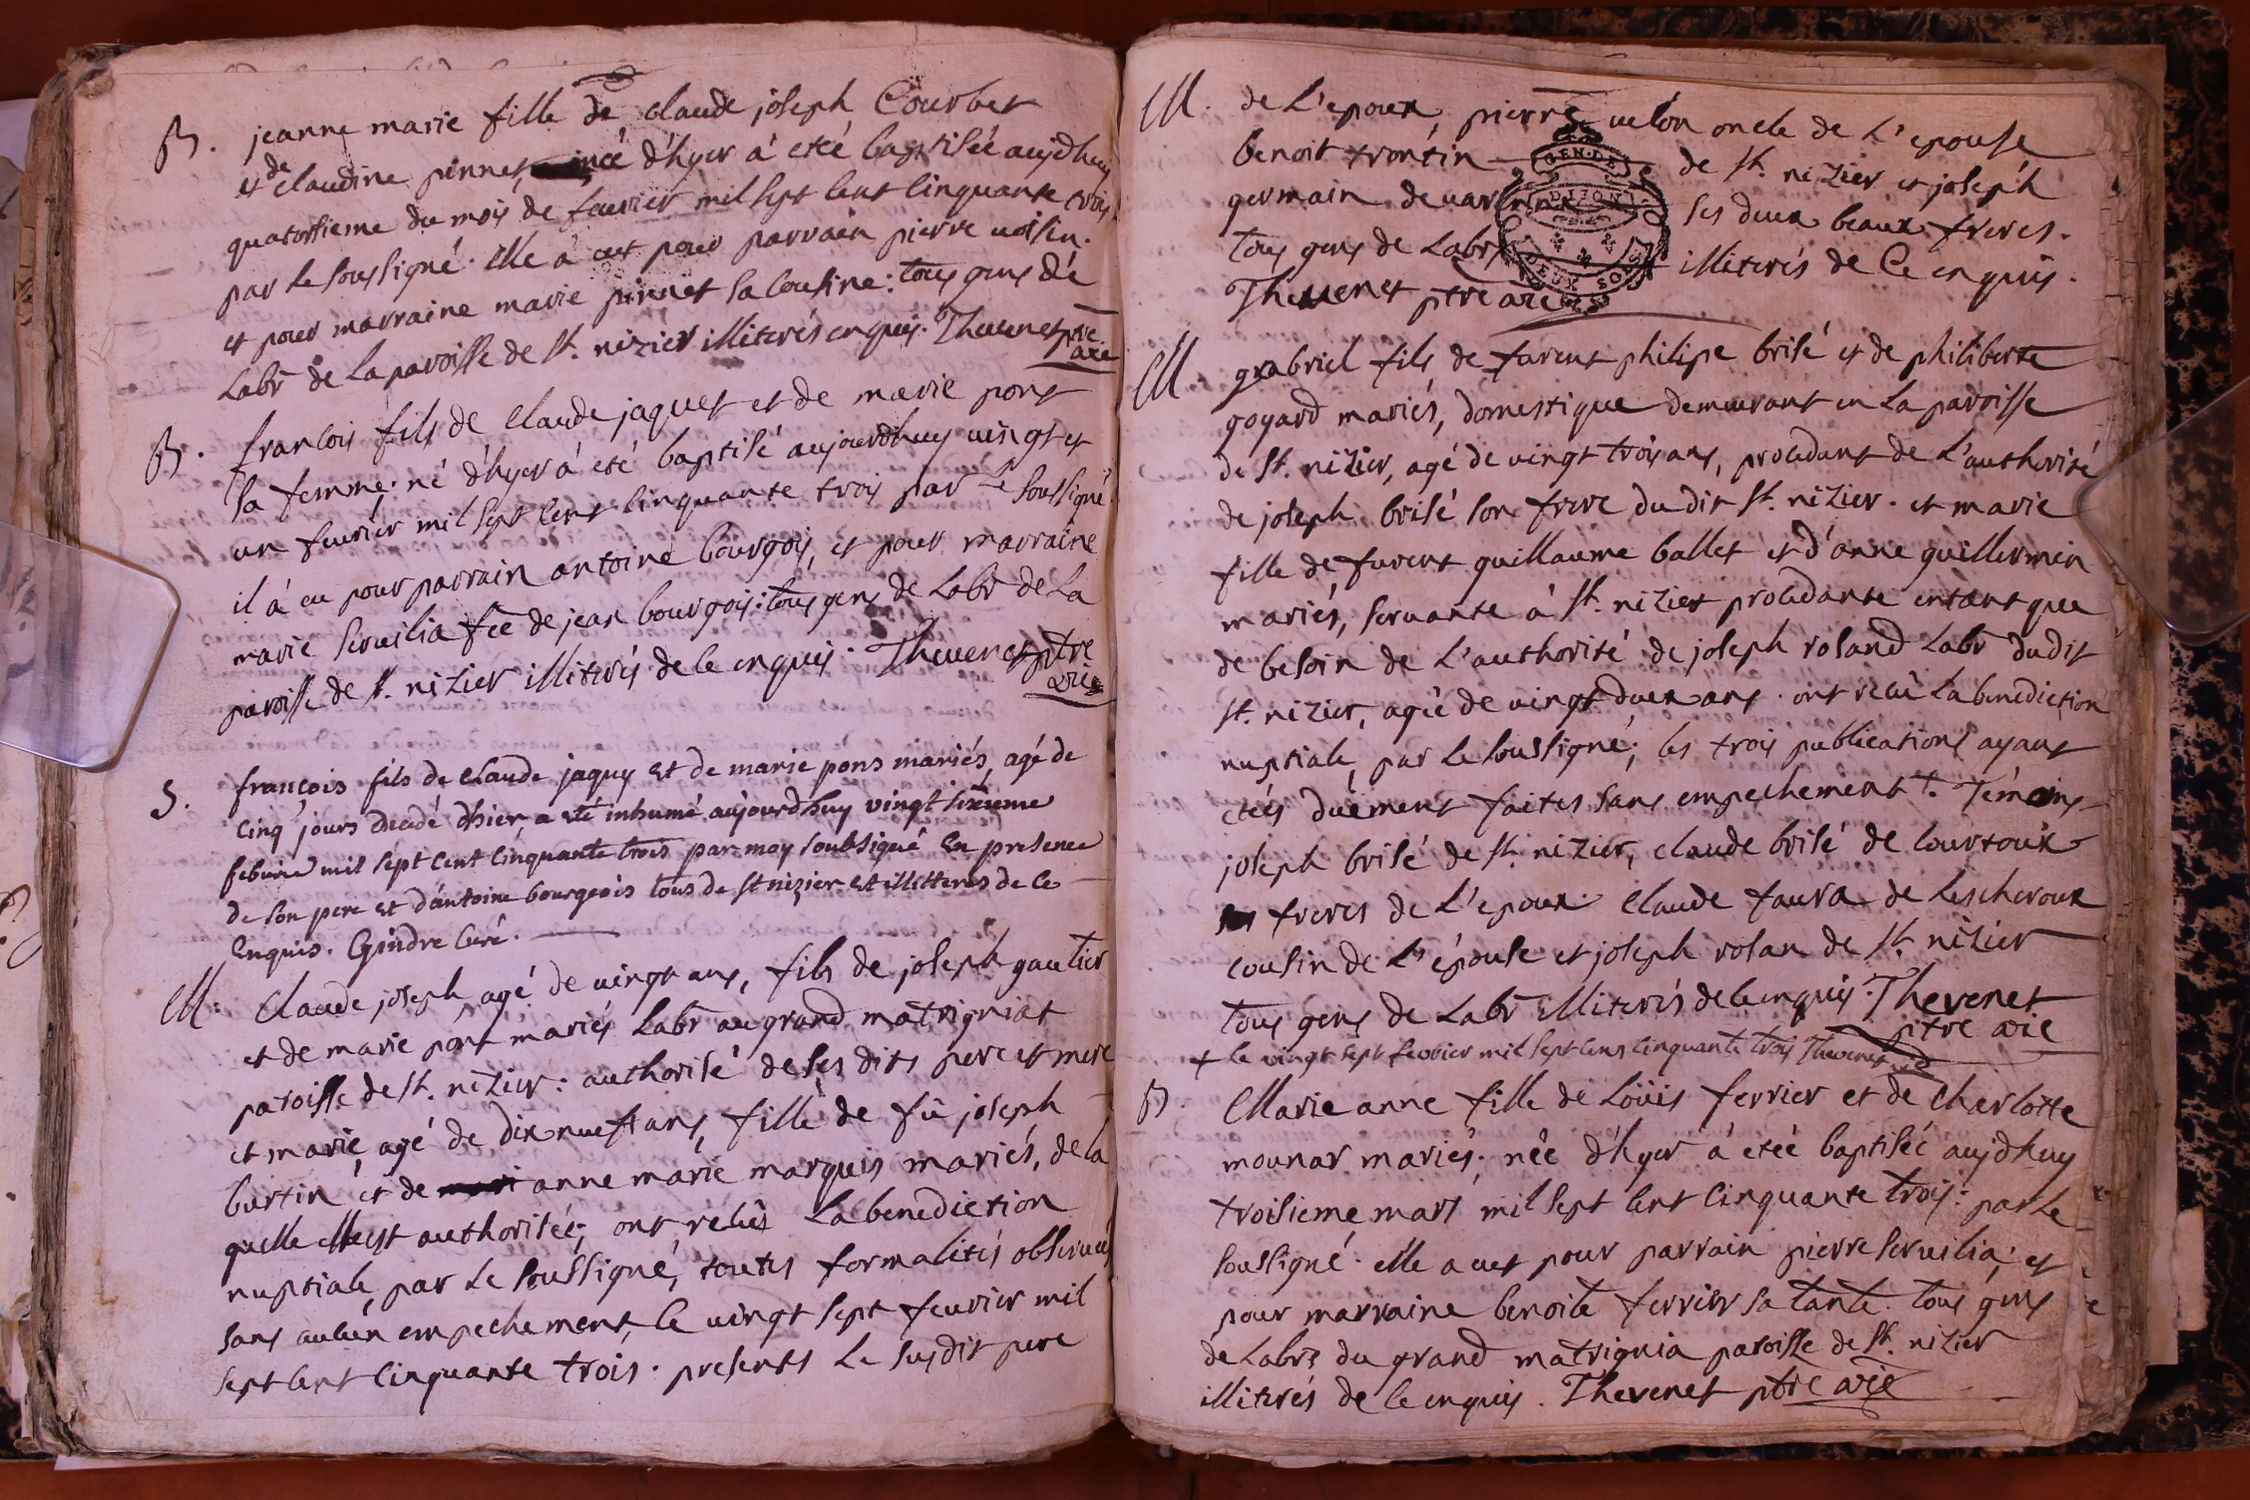 B. jeanne marie fille de claude joseph Courbet
et de claudine pinnet née d'hyer à etée baptisée aujd'huy
quatorsieme du mois de feuvrier mil sept cent cinquante trois
par le soussigné. elle a eut pour parrain pierre voisin.
et pour marraine marie pinnet sa cousine: tous gens de
Labr de la paroisse de St. nizier illiterés enquis. Thevenet ptre
vic
B. francois fils de claude jaquet et de marie pont
sa femme: né d'hyer à eté baptisé aujourdhuy vingt et
un feuvrier mil sept cent cinquante trois par le soussigné.
il à eu pour parrain antoine bourgois, et pour marraine
marie servilia fee de jean bourgois: tous gens de Labr de la
paroisse de St. nizier illiterés de ce enquis. Thevenet ptre
vic
S. françois fils de claude jaquy et de marie pons mariés, agé de
cinq jours decedé dhier a eté inhumé aujourdhuy vingt sixieme
feburié mil sept cent cinquante trois par moy soubsigné En presence
de son pere et d'antoine bourgeois tous de st nizier et illitteres de ce
Enquis. Gindre Curé.
M. Claude joseph, agé de vingt ans, fils de joseph gautier
et de marie pont mariés Labr au grand matrigniat
paroisse de St. nizier: authorisé de ses dits pere et mere
et marie, agé de dix neuf ans, fille de fû joseph
burtin et de anne marie marquis mariés, de la
quelle elle est authorisée; ont reçûs La benediction
nuptiale, par le soussigné, toutes formalités observées
sans aulcun empechement, le vingt sept feuvrier mil
sept cent cinquante trois. presents le susdit pere
M. de L'epoux pierre velon oncle de L'epouse
GEN. DE
benoit trontin de St. nizier et joseph
DIJON
germain de ses deux beaux freres.
tous gens de Labr illiterés de Ce enquis.
DEUX SOLS
Thevenet ptre vic
M. gabriel fils de furent philipe brisé et de philiberte
goyard mariés, domestique demeurant en La paroisse
de St. nizier, agé de vingt trois ans, procedant de L'authorité
de joseph brisé son frere du dit St. nizier. et marie
fille de furent guillaume ballet et d'anne guillermin
mariés, servante à St. nizier procedante entant que
de besoin de L'authorité de joseph roland Labr dudit
St. nizier, agée de vingt deux ans. ont reçû La benediction
nuptiale, par le soussigné; les trois publications ayant
etées duëment faites sans empechement †. Témoins
joseph brisé de St. nizier, claude brisé de courtoux
freres de L'epoux. Claude favra de Lescheroux
cousin de L'épouse et joseph rolan de St. nizier
tous gens de Labr illiterés de ce enquis. Thevenet
ptre vic
† le vingt sept fevrier mil sept cens cinquante trois Thevenet
B. Marie anne fille de Loüis ferrier et de Charlotte
mounar mariés. née d'hyer à etée baptisée aujdhuy
troisieme mars mil sept cent cinquante trois. par le
soussigné. elle a eut pour parrain pierre servilia; et
pour marraine benoite ferrier sa tante. tous gens
de Labr du grand matrignia paroisse de St. nizier
illiterés de ce enquis. Thevenet ptre vic